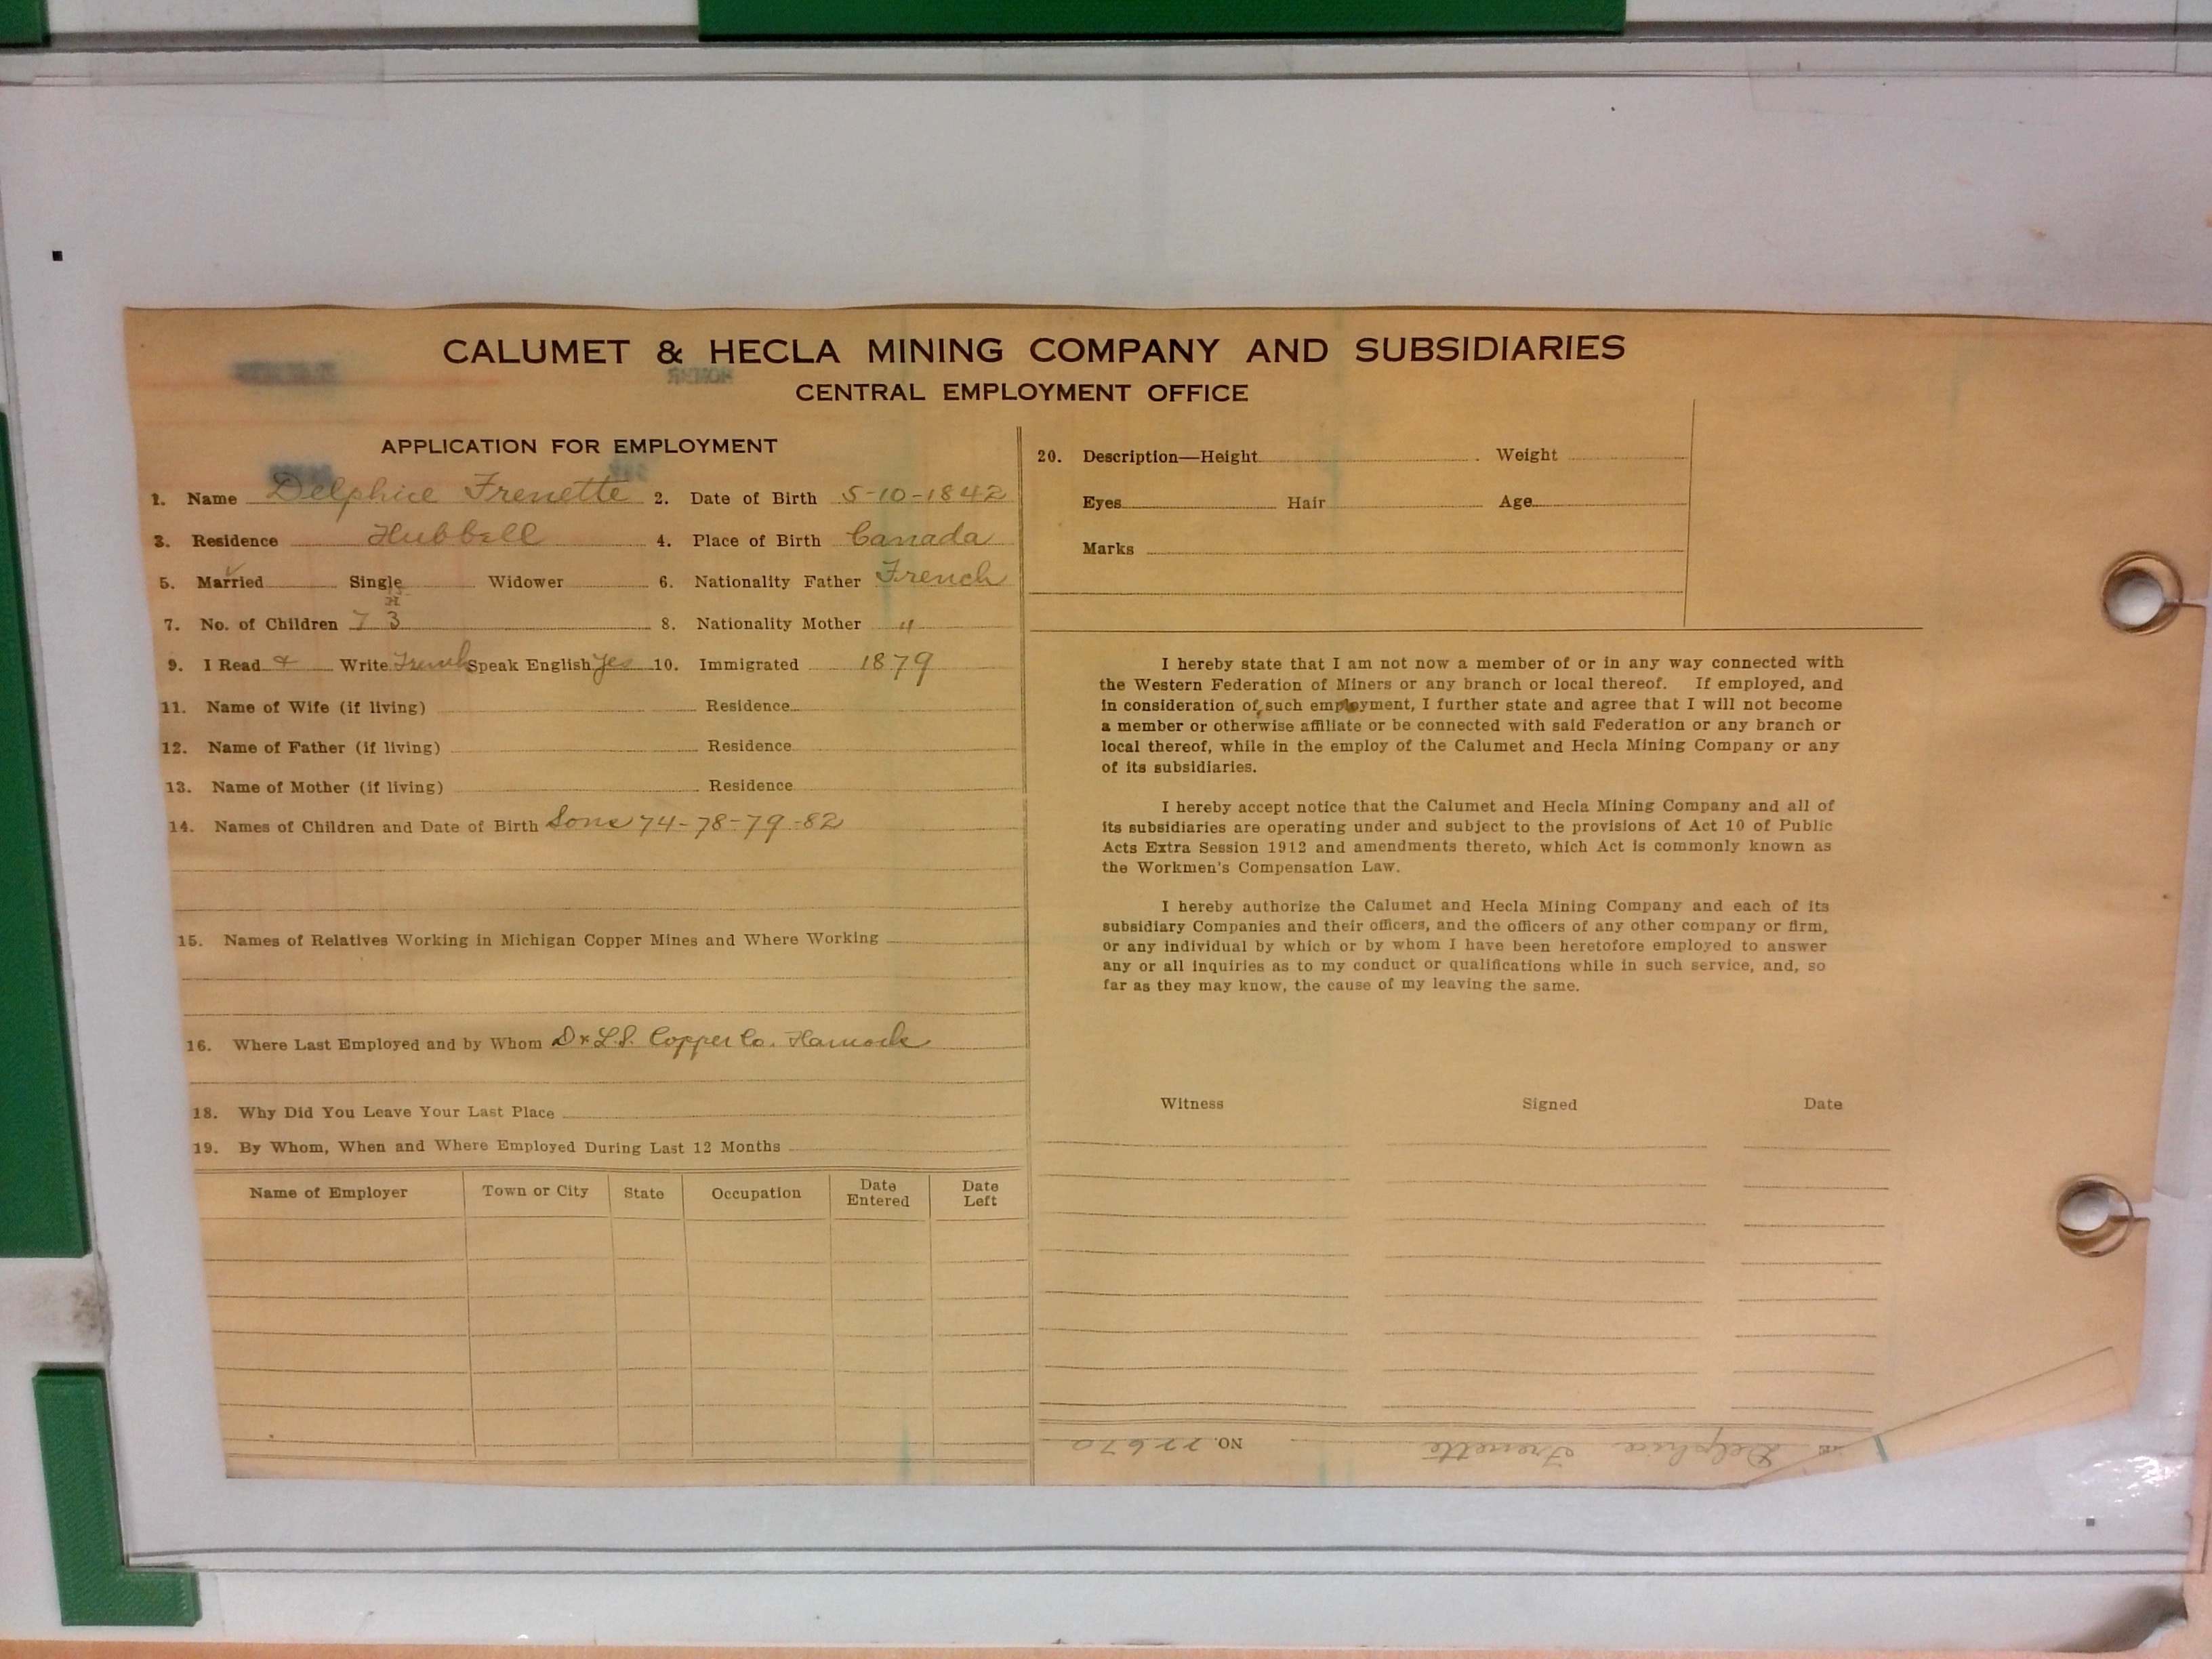 CALUMET & HECLA MINING COMPANY AND SUBSIDIARIES
CENTRAL EMPLOYMENT OFFICE
APPLICATION FOR EMPLOYMENT
1. Name Delphice Frenette 2. Date of Birth 5-10-1842
3. Residence Hubbell 4. Place of Birth Canada
5. Married ✓ Single Widower 6. Nationality Father French
7. No. of Children 7 3 8. Nationality Mother "
9. I Read & Write French Speak English Yes 10. Immigrated 1879
11. Name of Wife (if living) Residence
12. Name of Father (if living) Residence
13. Name of Mother (if living) Residence
14. Names of Children and Date of Birth Sons 74-78-79-82
15. Names of Relatives Working in Michigan Copper Mines and Where Working
16. Where Last Employed and by Whom D & L.S. Copper Co. Hancock
18. Why Did You Leave Your Last Place
19. By Whom, When and Where Employed During Last 12 Months
Name of Employer Town or City State Occupation Date Entered Date Left
20. Description—Height Weight
Eyes Hair Age
Marks
I hereby state that I am not now a member of or in any way connected with
the Western Federation of Miners or any branch or local thereof. If employed, and
in consideration of such employment, I further state and agree that I will not become
a member or otherwise affiliate or be connected with said Federation or any branch or
local thereof, while in the employ of the Calumet and Hecla Mining Company or any
of its subsidiaries.
I hereby accept notice that the Calumet and Hecla Mining Company and all of
its subsidiaries are operating under and subject to the provisions of Act 10 of Public
Acts Extra Session 1912 and amendments thereto, which Act is commonly known as
the Workmen's Compensation Law.
I hereby authorize the Calumet and Hecla Mining Company and each of its
subsidiary Companies and their officers, and the officers of any other company or firm,
or any individual by which or by whom I have been heretofore employed to answer
any or all inquiries as to my conduct or qualifications while in such service, and, so
far as they may know, the cause of my leaving the same.
Witness Signed Date
Delphice Frenette NO. 22670